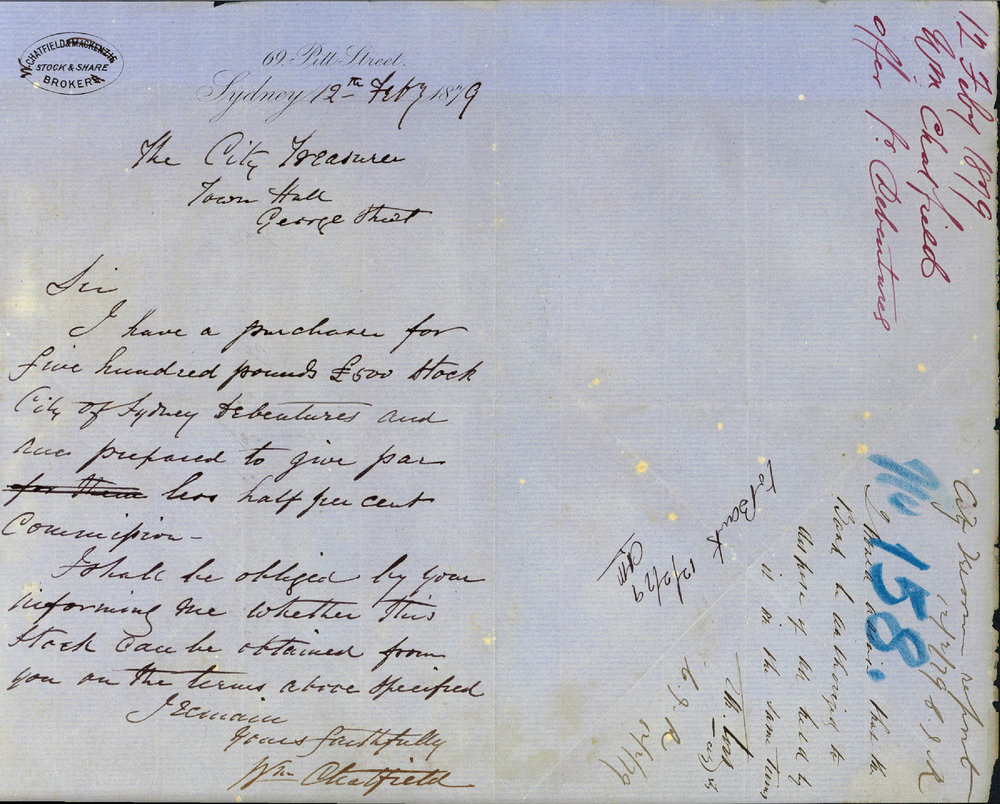 W. CHATFIELD & MACKENZIE
STOCK & SHARE
BROKER
69. Pitt Street.
Sydney 12th Feby 1879
The City Treasurer
Town Hall
George Street
Sir
I have a purchaser for
five hundred pounds £500 Stock
City of Sydney Debentures and
am prepared to give par
for them less half per cent
Commission -
I shall be obliged by your
informing me whether this
Stock can be obtained from
you on the terms above specified
I remain
Yours faithfully
Wm Chatfield
12 Feby 1879
Wm Chatfield
offer for Debentures
No 158.
City Treasurer report
12/2/79
I would advise that the
Bank be authorized to
dispose of the held by
is on the same terms
12/2/79
12/2/79